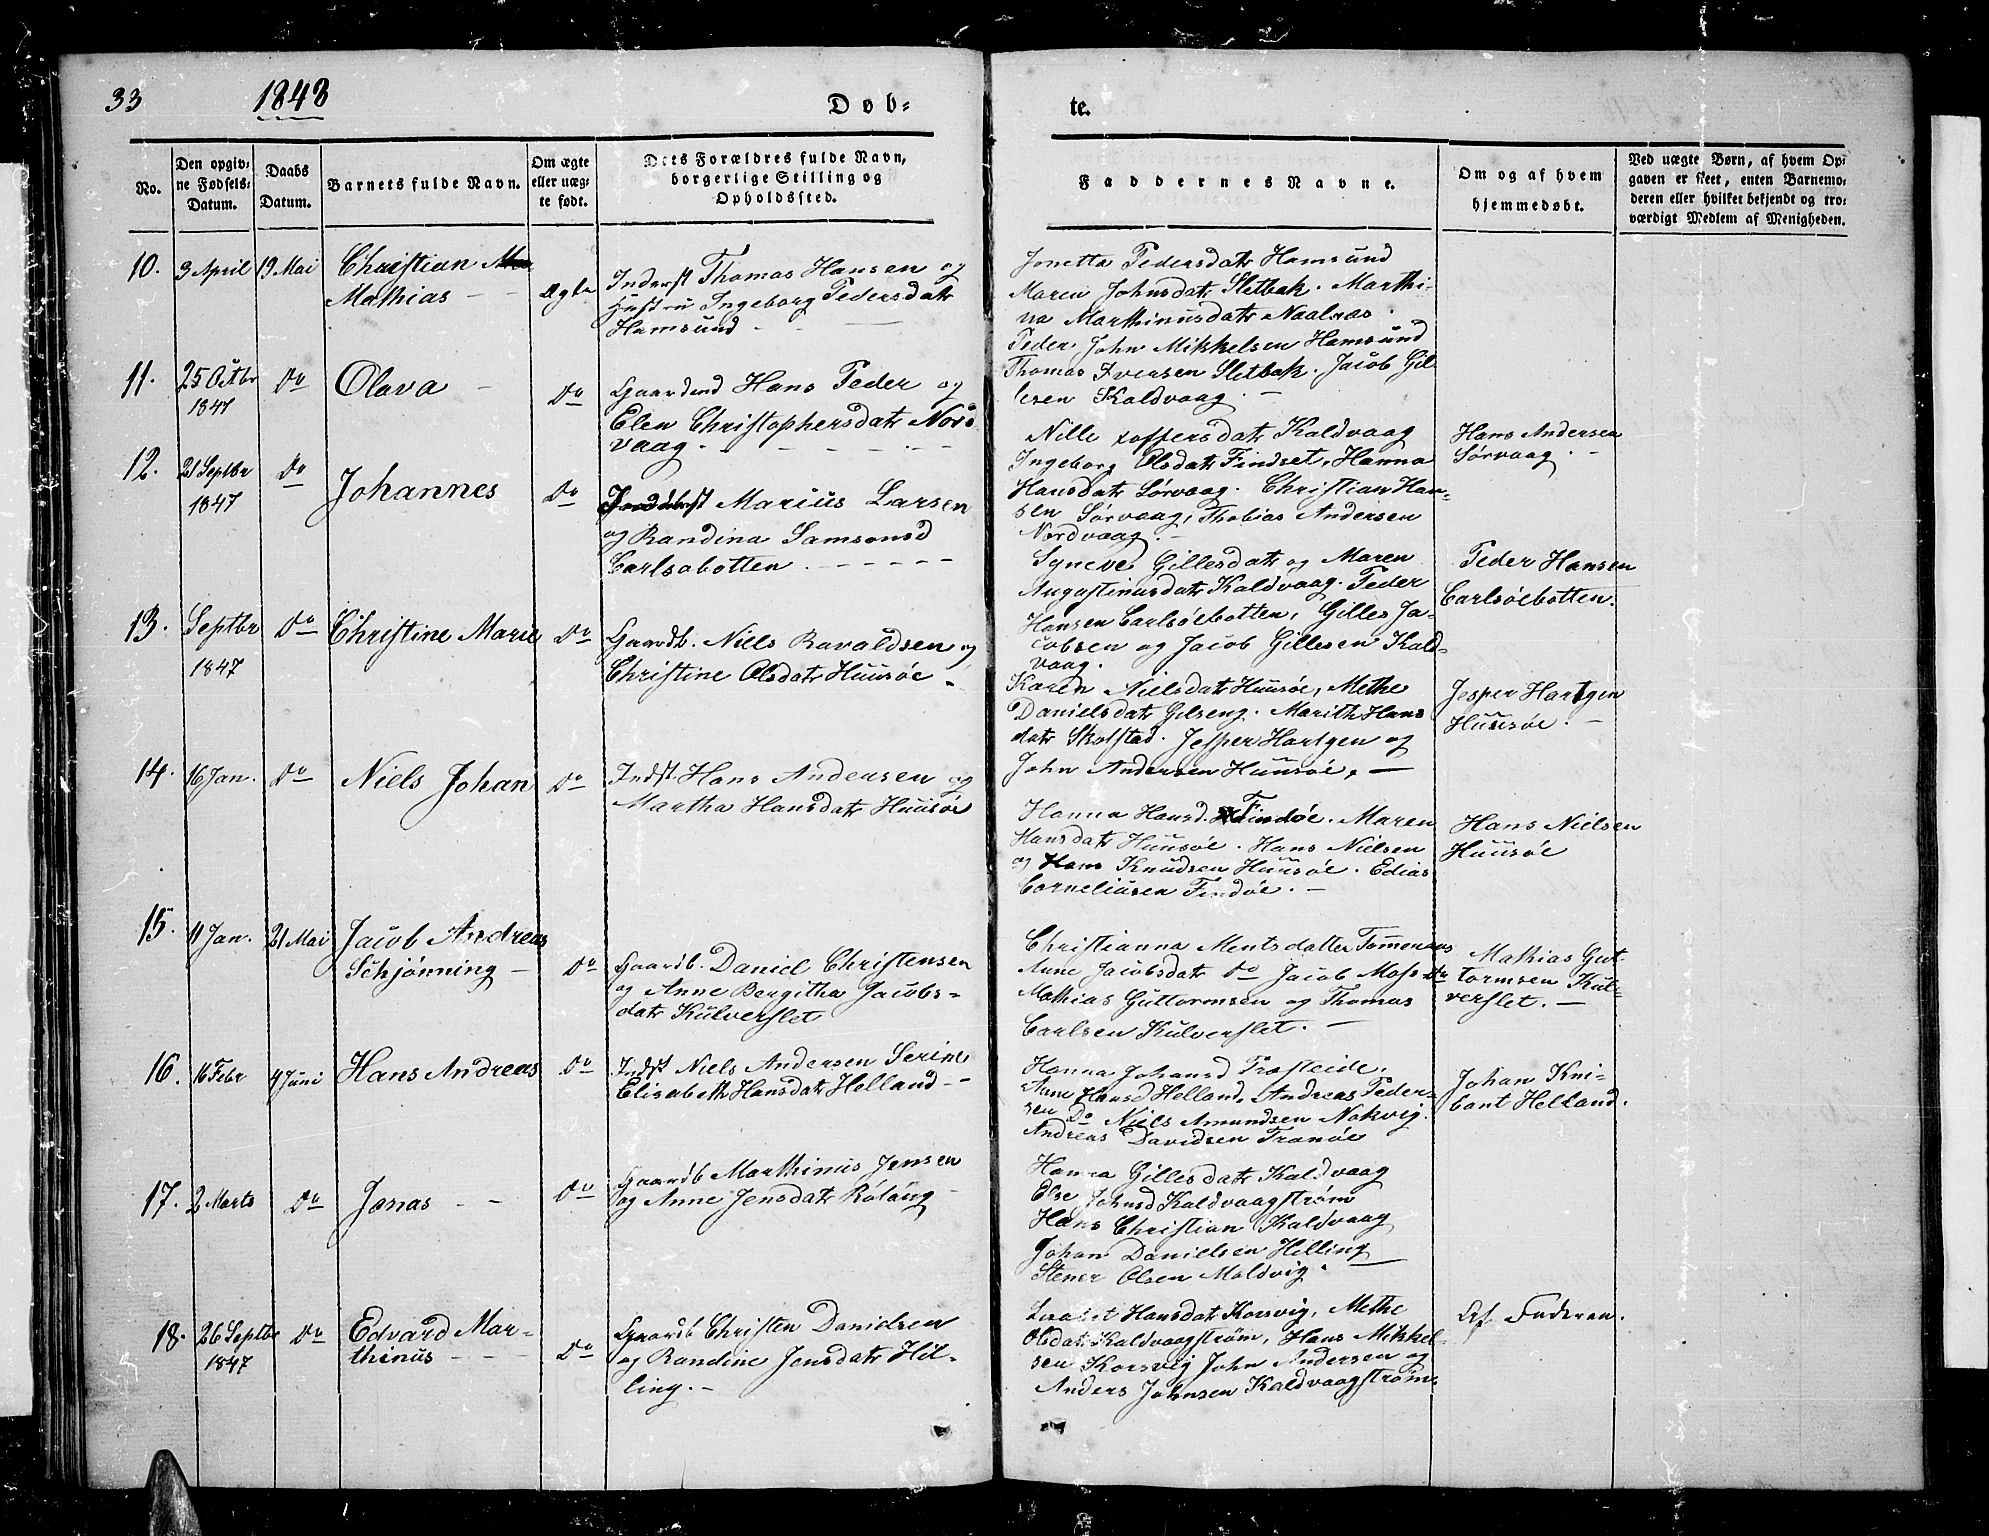 33
1848
Døb=
te.
No.
Den opgiv=
ne Fødsels=
Datum.
Daabs
Datum.
Barnets fulde Navn.
Om ægte
eller uæg=
te født.
Dets Forældres fulde Navn,
borgerlige Stilling og
Opholdssted.
Faddernes Navne.
Om og af hvem
hjemmedøbt.
Ved uægte Børn, af hvem Op=
gaven er skeet, enten Barnemo=
deren eller hvilket bekjendt og tro=
værdigt Medlem af Menigheden.
10.
3 April
19 Mai
Christian
Mathias
Ægte
Inderst Thomas Hansen og
Hustru Ingeborg Pedersdatr
Hamsund
Jonetta Pedersdatr Hamsund
Maren Johnsdatr Sletbak. Marthi-
na Marthinusdatr Naalnæs.
Peder John Mikkelsen Hamsund
Thomas Iversen Sletbak. Jacob Gil
lesen Kaldvaag.
11.
25 Octbr
1847
Do
Olava
Do
Gaardmd Hans Peder og
Elen Christophersdatr Nord
vaag.
Nille xoffersdatr Kaldvaag
Ingeborg Olsdatr Findset, Hanna
Hansdatr Sørvaag. Christian Han-
sen Sørvaag, Thobias Andersen
Nordvaag.
Hans Andersen
Sørvaag.
12.
21 Septbr
1847
Do
Johannes
Do
Inderst Marius Larsen
og Randina Samsonsd
Carlsøbotten.
Syneve Gillesdatr og Maren
Augustinusdatr Kaldvaag. Peder
Hansen Carlsöebotten, Gilles Ja-
cobsen og Jacob Gillesen Kald-
vaag.
Peder Hansen
Carlsöebotten.
13.
Septbr
1847
Do
Christine Marie
Do
Gaardb. Niels Ravaldsen og
Christine Olsdatr Huusøe.
Karen Nielsdatr Huusøe, Methe
Danielsdatr Gilseng. Marith Hans
datr Skotstad. Jesper Hartgen og
John Andersen Huusøe,
Jesper Hartgen
Huusøe.
14.
16 Jan.
Do
Niels Johan
Do
Indst. Hans Andersen og
Martha Hansdatr Huusøe
Hanna Hansd. Findøe. Maren
Hansdatr Huusøe. Hans Nielsen
og Hans Knudsen Huusøe. Edias
Corneliusen Findøe.
Hans Nielsen
Huusøe
15.
11 Jan.
21 Mai
Jacob Andreas
Schjønning
Do
Gaardb. Daniel Christensen
og Anne Bergitha Jacobs-
datr Kulverslet
Christianna Mentsdatter Tømmeraas
Anne Jacobsdatr Do Jacob Mose Do
Mathias Guttormsen og Thomas
Carlsen Kulverslet.
Mathias Gut
tormsen Kul-
verslet.
16.
16 Febr
4 Juni
Hans Andreas
Do
Indst Niels Andersen Serine
Elisabeth Hansdatr Helland
Hanna Johansd Træsleide,
Anne Hansd Helland, Andreas Peder-
sen Do Niels Amundsen Nokvig.
Andreas Davidsen Tranøe
Johan Kni-
bant Helland.
17.
2 Marts
Do
Jonas
Do
Gaardb Marthinus Jensen
og Anne Jensdatr Rötang
Hanna Gillesdatr Kaldvaag
Else Johnsd Kaldvaagstrøm
Hans Christian Kaldvaag
Johan Danielsen Hilling
Stener Olsen Moldvig.
18.
26 Septbr
1847
Do
Edvard Mar-
thinus
Do
Gaardb Christen Danielsen
og Randine Jensdatr Hil-
ling.
Hansdatr Korsvig, Methe
Olsdatr Kaldvaagstrøm, Hans Mikkel-
sen Korsvig John Andersen og
Anders Johnsen Kaldvaagstrøm.
Af Faderen.